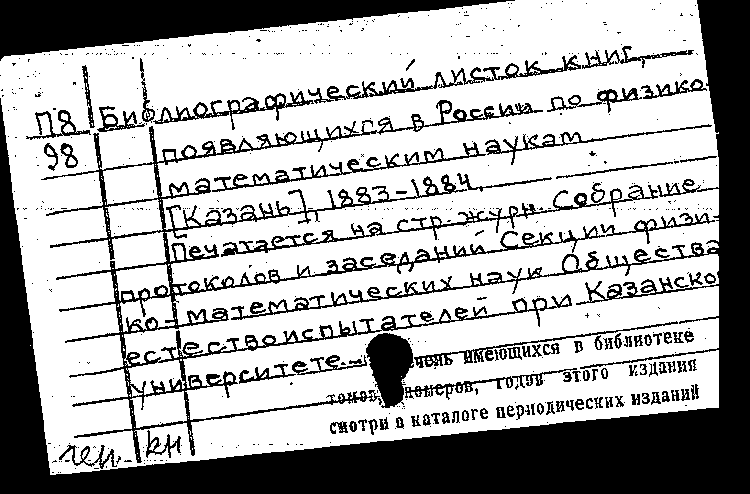 П8 Библиографический листок книг,
98 появляющихся в России по физико-
математическим наукам.
[Казань], 1883-1884.
Печатается на стр. журн. Собрание
протоколов и заседаний Секции физи-
ко-математических наук Общества
естествоиспытателей при Казанско
университете.-
имеющихся в библиотеке
томов, номеров, годов этого издания
смотри в каталоге периодических изданий
ген. кн